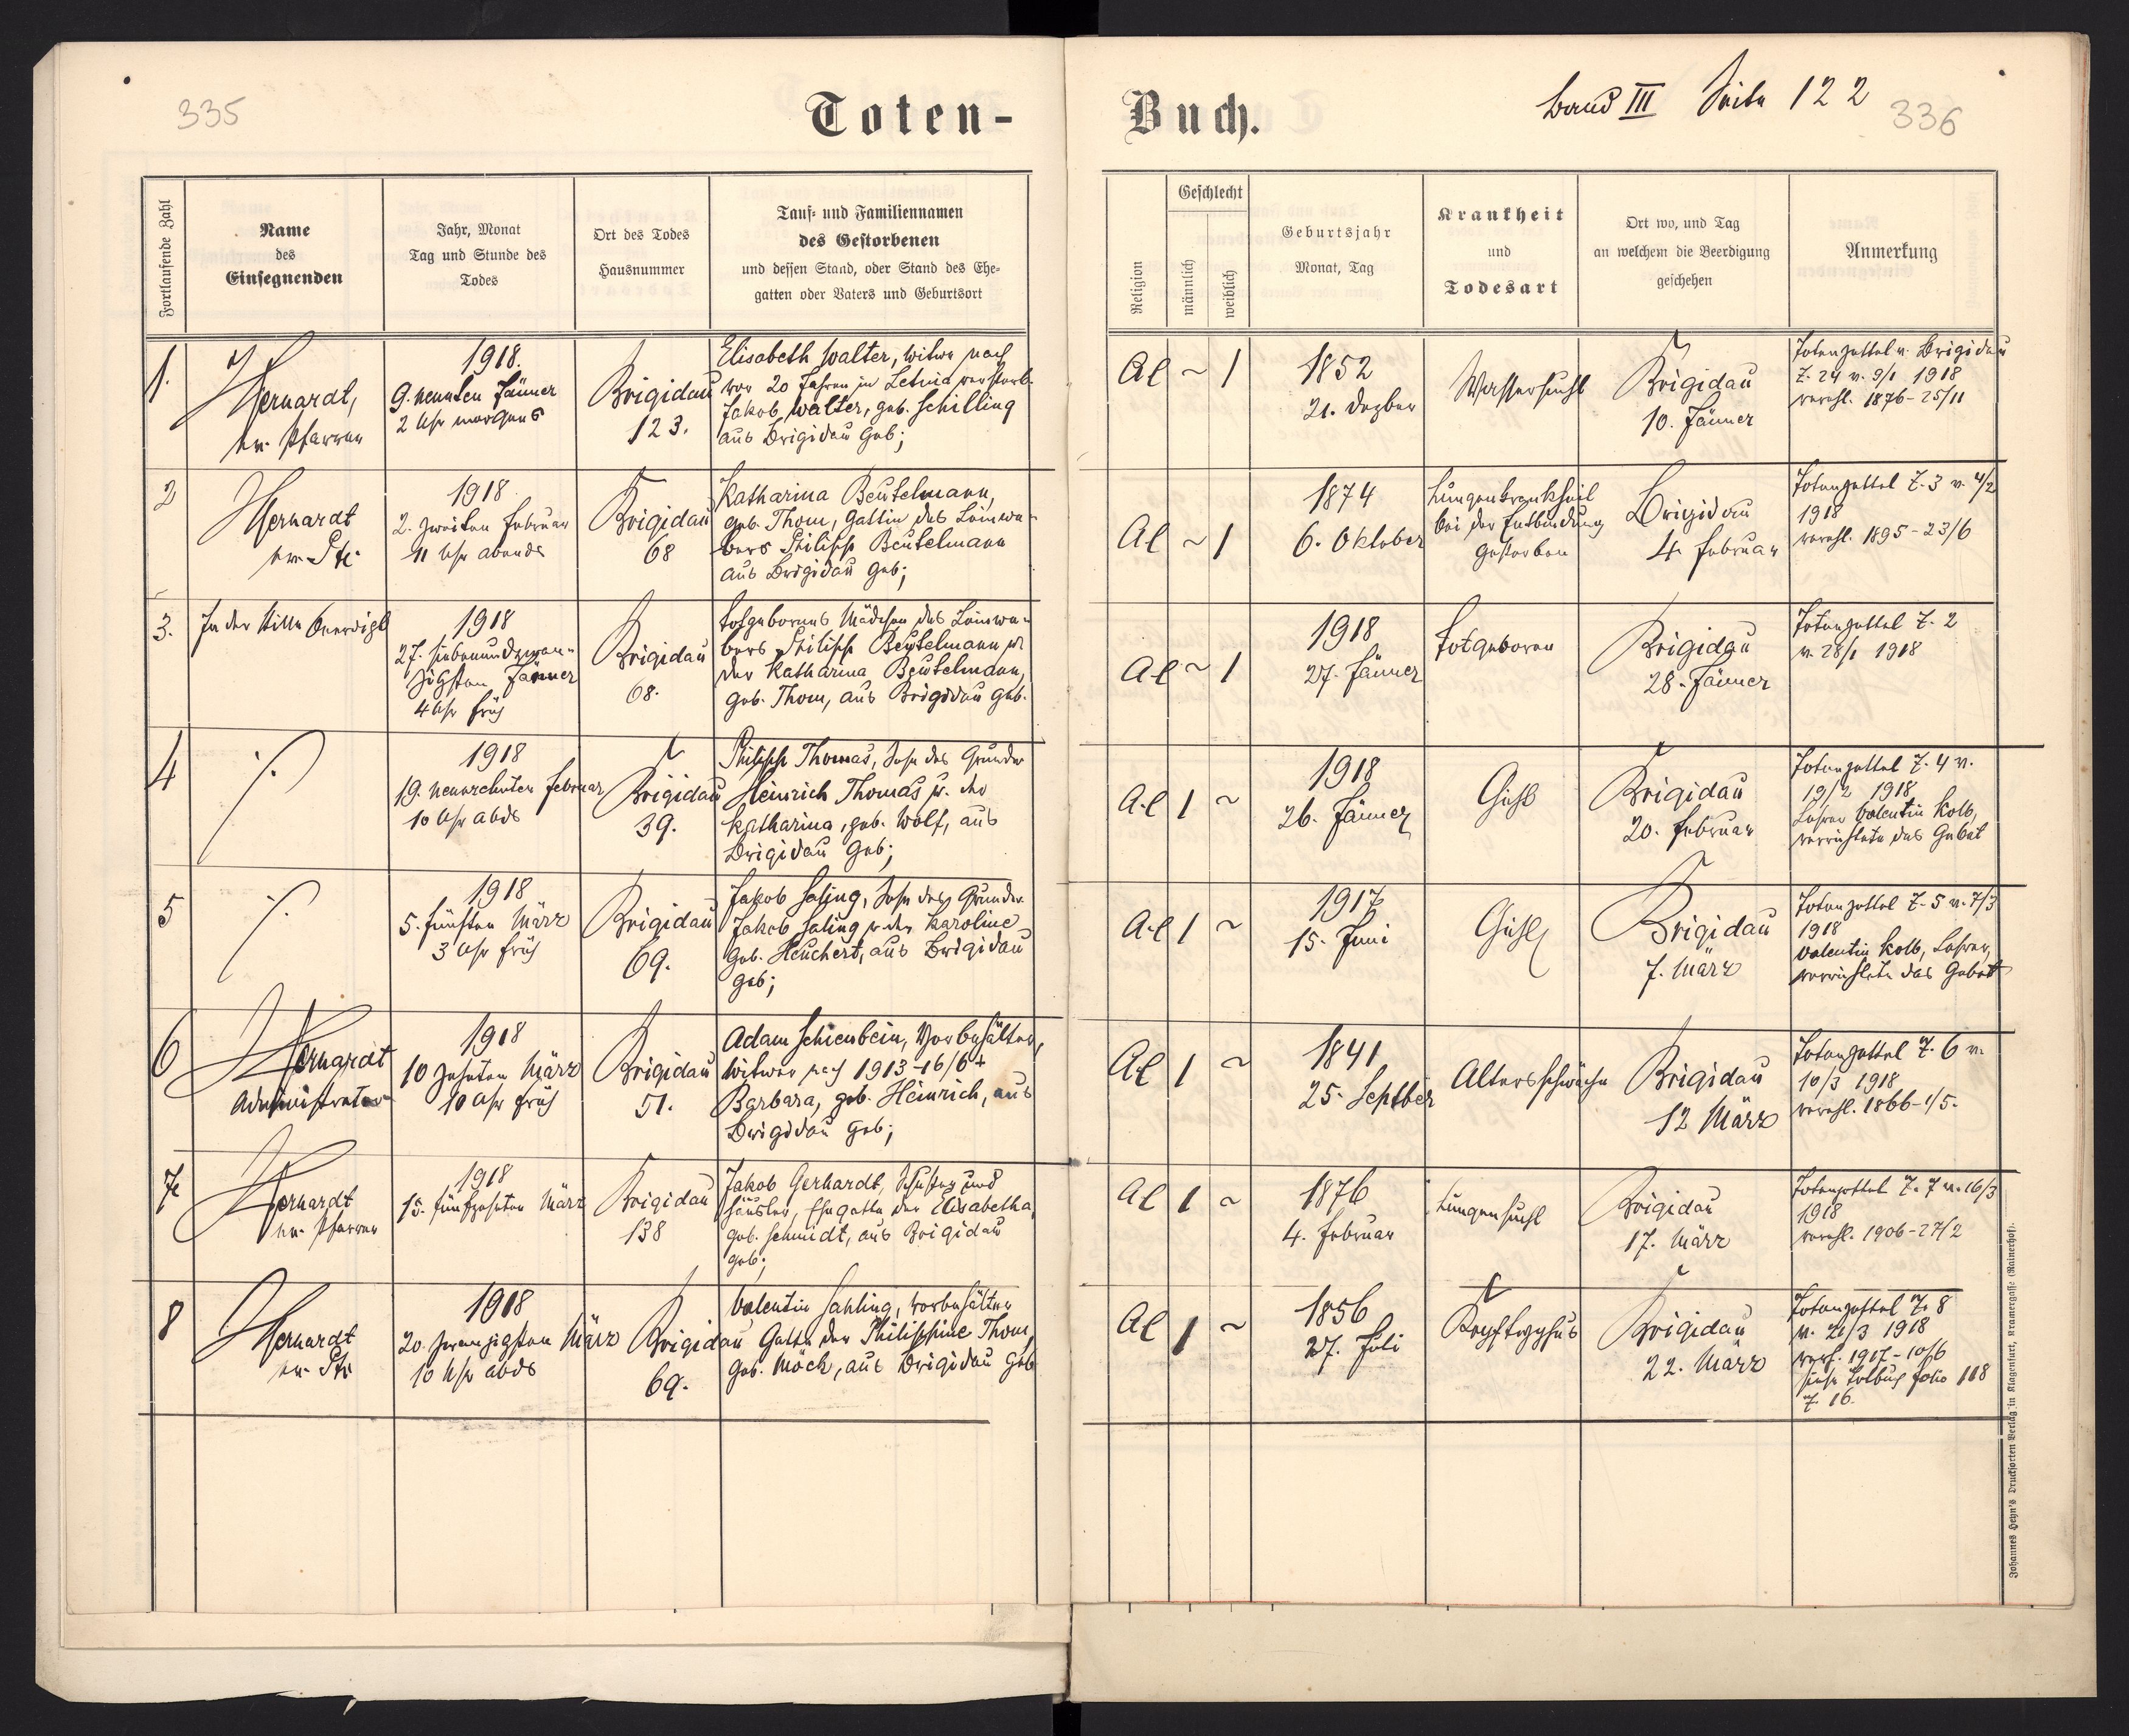 335
Toten-
Fortlaufende Zahl
Name
des
Einsegnenden
Jahr, Monat
Tag und Stunde des
Todes
Ort des Todes
Hausnummer
Tauf- und Familiennamen
des Gestorbenen
und dessen Stand, oder Stand des Ehe-
gatten oder Vaters und Geburtsort
1.
Gerhardt,
ev. Pfarrer
1918.
9. neunten Jänner
2 Uhr morgens
Brigidau
123.
Elisabeth Walter, Witwe nach
vor 20 Jahren in Letnia verstorb.
Jakob Walter, geb. Schilling
aus Brigidau geb;
2
Gerhardt
ev. Pfr
1918
2. zweiten Februar
11 Uhr abends
Brigidau
68
Katharina Beutelmann,
geb. Thom, Gattin des Leinwe-
bers Philipp Beutelmann
aus Brigidau geb;
3.
In der Stille beerdigt
1918
27. siebenundzwan-
zigsten Jänner
4 Uhr früh
Brigidau
68.
totgeborenes Mädchen des Leinwe-
bers Philipp Beutelmann u
der Katharina Beutelmann,
geb. Thom, aus Brigidau geb.
4
1918
19. neunzehnten Februar
10 Uhr abds
Brigidau
39.
Philipp Thomas, Sohn des Grundw
Heinrich Thomas u. der
Katharina, geb. Wolf, aus
Brigidau geb;
5
1918
5. fünften März
3 Uhr früh
Brigidau
69.
Jakob Saling, Sohn des Grundw
Jakob Saling u der Karoline
geb. Heuchert, aus Brigidau
geb;
6
Gerhardt
Administrator
1918
10 zehnten März
10 Uhr früh
Brigidau
51.
Adam Schienbein, Vorbehältner,
Witwer nach 1913-16/6 +
Barbara, geb. Heinrich, aus
Brigidau geb;
7
Gerhardt
ev. Pfarrer
1918
15. fünfzehnten März
Brigidau
138
Jakob Gerhardt, Schuster und
Häusler, Ehegatte der Elisabetha,
geb. Schmidt, aus Brigidau
geb;
8
Gerhardt
ev. Pfr
1918
20. zwanzigsten März
10 Uhr abds
Brigidau
69.
Valentin Sahling, Vorbehältner
Gatte der Philippine Thom,
geb. Möck, aus Brigidau geb
Buch.
Band III Seite 122
336
Religion
Geschlecht
männlich
weiblich
Geburtsjahr
Monat, Tag
Krankheit
und
Todesart
Ort wo, und Tag
an welchem die Beerdigung
geschehen
Anmerkung
Al ~ 1
1852
21. Dezber
Wassersucht
Brigidau
10. Jänner
Totenzettel v. Brigidau
Z. 24 v. 9/1 1918
verehl. 1876-25/11
Al ~ 1
1874
6. Oktober
Lungenkrankheit
bei der Entbindung
gestorben
Brigidau
4. Februar
Totenzettel Z. 3 v. 4/2
1918
verehl. 1895-23/6
Al ~ 1
1918
27. Jänner
totgeboren
Brigidau
28. Jänner
Totenzettel Z. 2
v. 28/1 1918
Al 1 ~
1918
26. Jänner
Gicht
Brigidau
20. Februar
Totenzettel Z. 4 v.
19/2 1918
Lehrer Valentin Kolb,
verrichtete das Gebet
Al 1 ~
1917
15. Juni
Gicht
Brigidau
7. März
Totenzettel Z. 5 v. 7/3
1918
Valentin Kolb, Lehrer,
verrichtete das Gebet
Al 1 ~
1841
25. Septber
Altersschwäche
Brigidau
12 März
Totenzettel Z. 6 v.
10/3 1918
verehl. 1866-1/5.
Al 1 ~
1876
4. Februar
Lungensucht
Brigidau
17. März
Totenzettel Z. 7 v. 16/3
1918
verehl. 1906-27/2
Al 1 ~
1856
27. Juli
Kopftyphus
Brigidau
22. März
Totenzettel Z. 8
v. 21/3 1918
verh. 1917-10/6
siehe Totbuch folio 118
Z 16.
Johannes Heyn's Drucksorten Verlag in Klagenfurt, Kramergasse (Rainerhof).